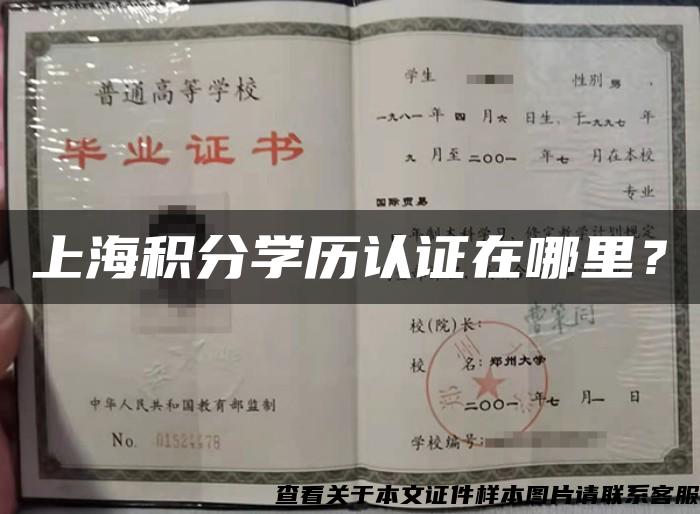 普通高等学校
毕业证书
中华人民共和国教育部监制
No. 01524478
学生 性别 男 ,
一九八一 年 四 月 六 日生、于一九九七 年
九 月至 二〇〇一 年 七 月在本校
国际贸易 专业
上海积分学历认证在哪里?
校(院)长:
校 名: 郑州大学
二〇〇一 年 七 月 一 日
学校编号:
查看关于本文证件样本图片请联系客服